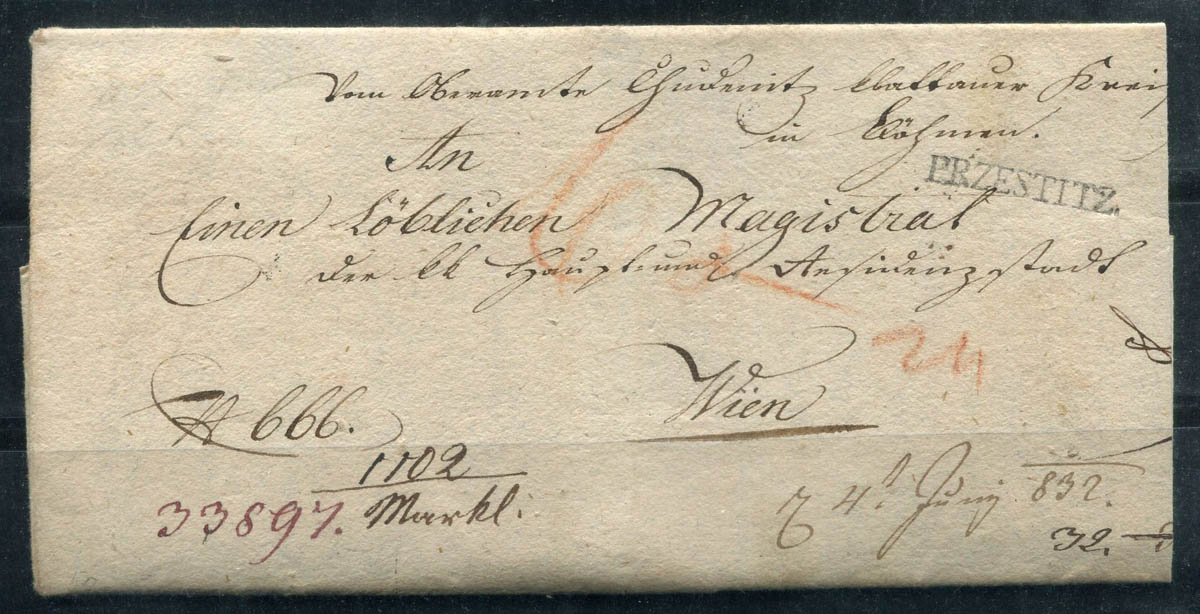 Vom Oberamte Chudenitz Klattauer Kreis
in Böhmen.
An
PRZESTITZ.
Einen Löblichen Magistrat
der kk Haupt- und Residenzstadt
24
Wien
N 666.
1102
33897. Markl:
4t Juny 832.
32.